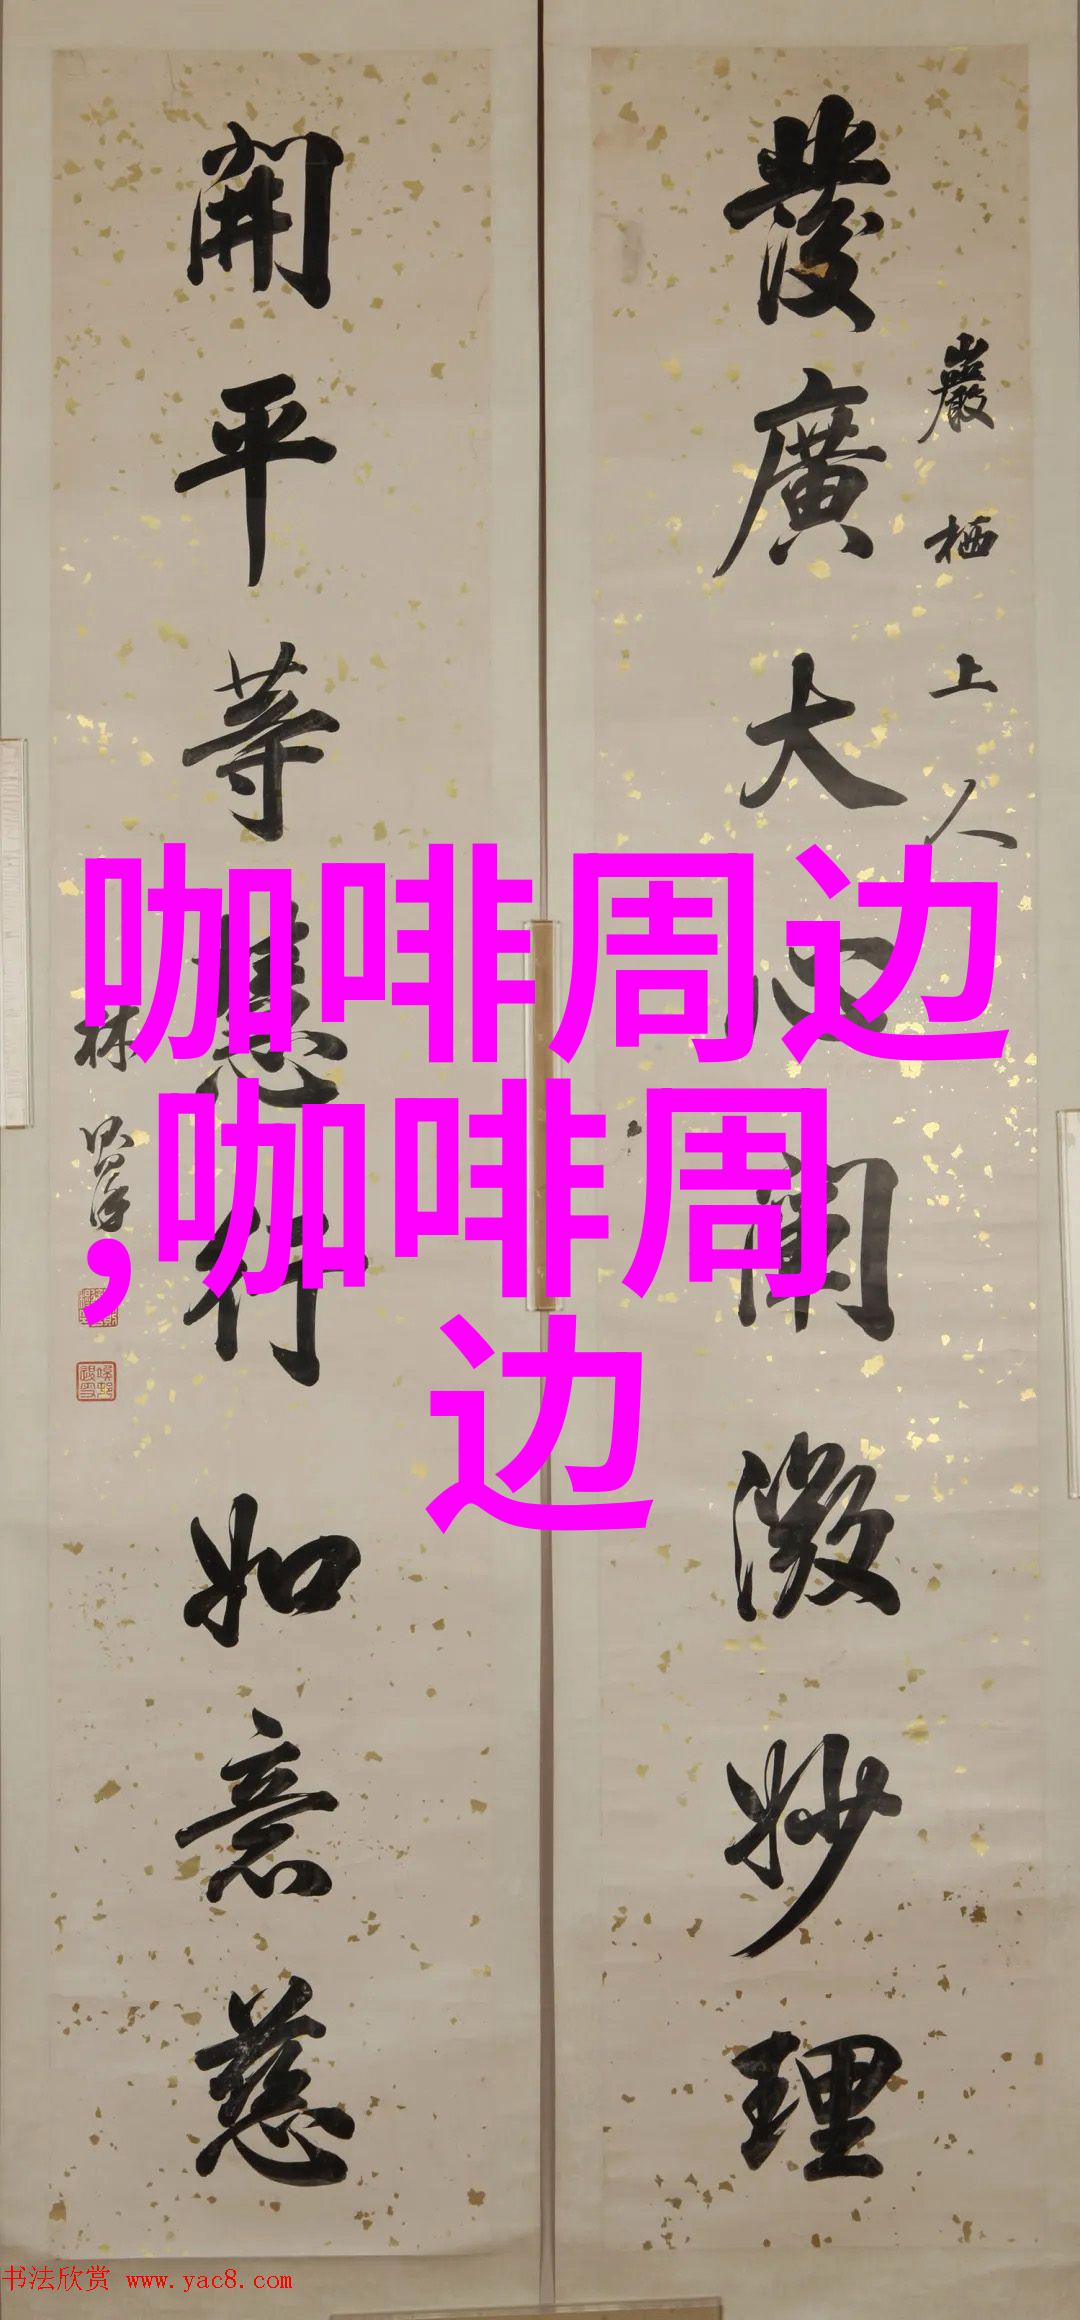 發廣大心闡微妙理
巖栖上人
開平等慧行如意慈
林
咖啡周边
,咖啡周
边
书法欣赏 www.yac8.com